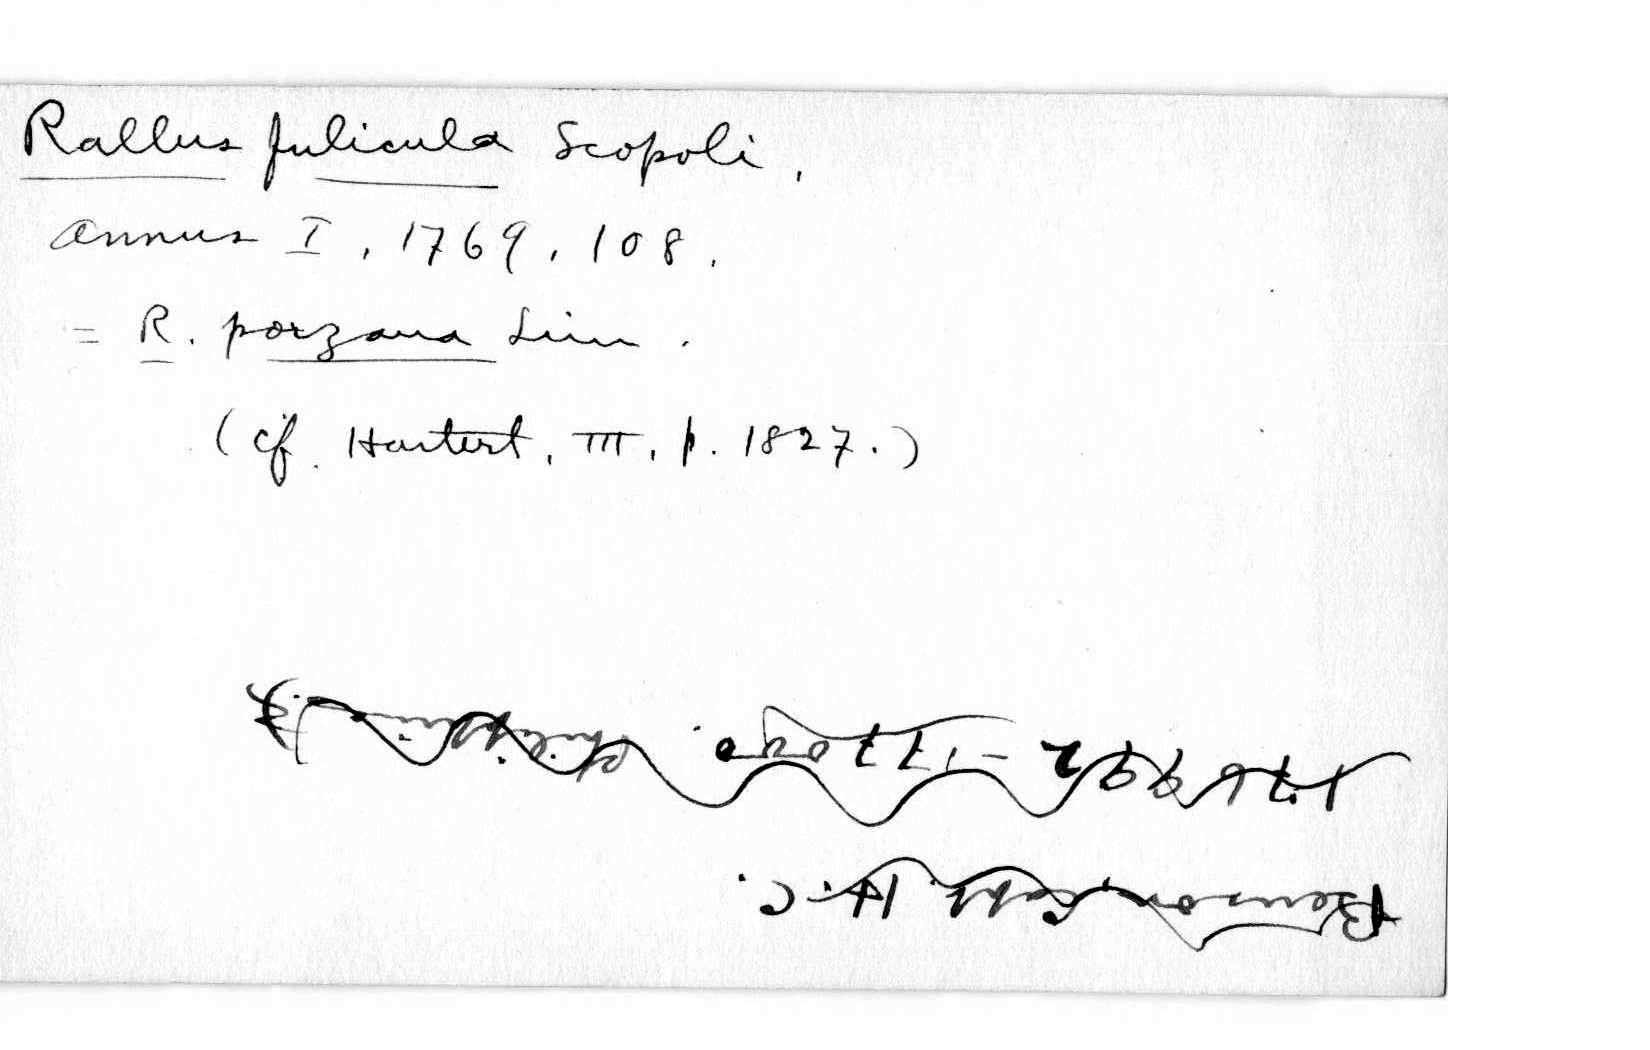 Rallus fulicula Scopoli,
annus I, 1769, 108.
= R. porzana Linn.
(cf. Hartert, III, p. 1827.)
Benson, Capt. H. C.